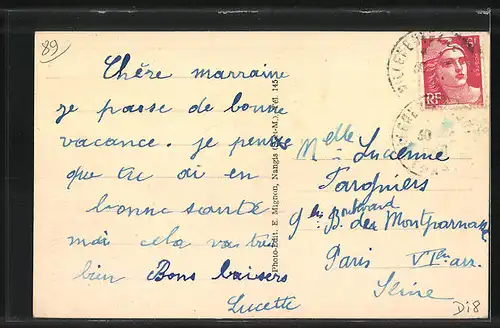 89
Chère marraine
je passe de bonne
vacance. je pense
que tu ai en
bonne santé
moi cela vas très
bien Bons baisers
Lucette
Photo-Edit. E. Mignon, Nangis (S.-et-M.) Tél. 145
Melle Lucienne
Farghiers
9 bis Boulevard
B. des Montparnasse
Paris VIe arr.
Seine
RF
Di8